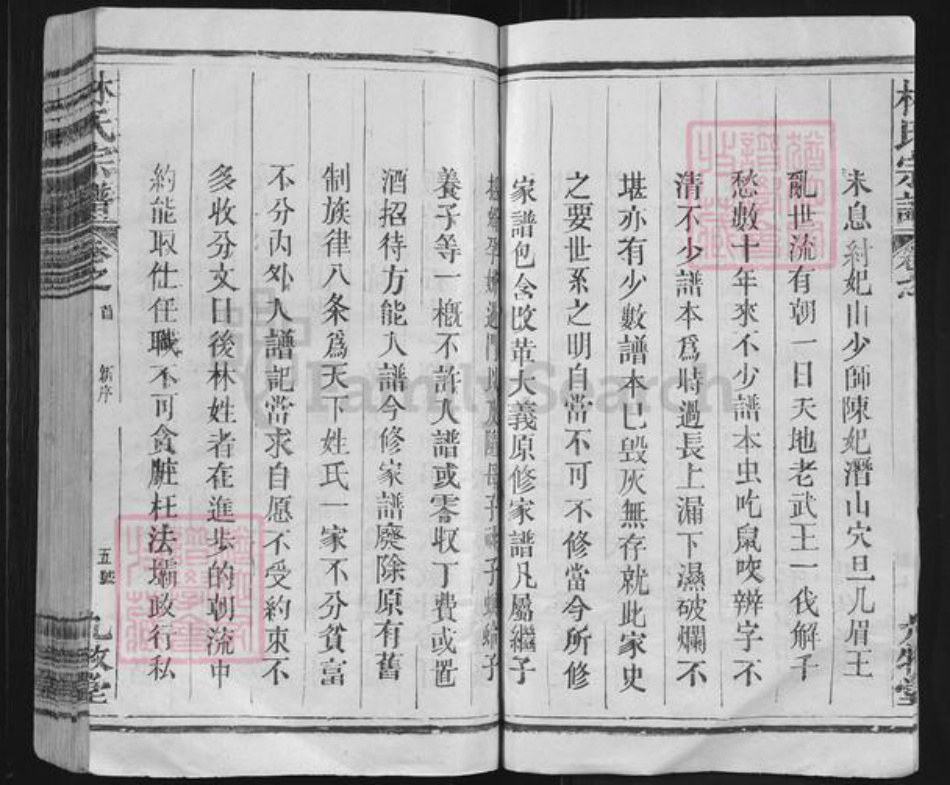 林氏宗譜
未息紂妃山少師陳妃潛山穴旦几眉王
亂世流有朝一日天地老武王一伐解千
愁數十年來不少譜本虫吃鼠咬辨字不
清不少譜本爲時過長上漏下濕破爛不
堪亦有少數譜本已毀灰無存就此家史
之要世系之明自當不可不修當今所修
家譜包含改革大義原修家譜凡屬繼子
養子等一概不許入譜或零收丁費或置
酒招待方能入譜今修家譜廢除原有舊
制族律八条爲天下姓氏一家不分貧富
不分內外人譜記當求自愿不受約束不
多收分文日後林姓者在進步的朝流中
約能取仕任職不可貪賍枉法壩政行私
林氏宗譜
卷之
首
新序
五號
九牧堂
FamilySearch